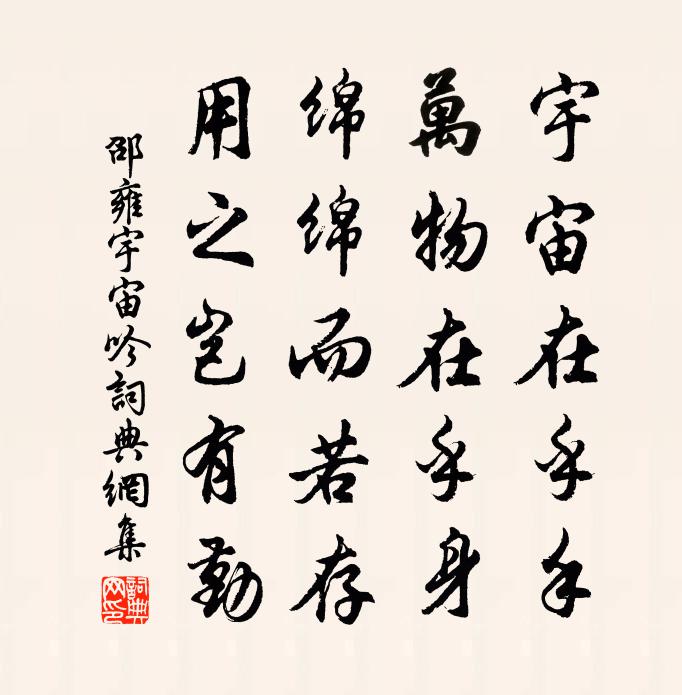 宇宙在乎手
萬物在乎身
绵绵而若存
用之豈有勤
邵雍宇宙吟詞典網集
詞典网印